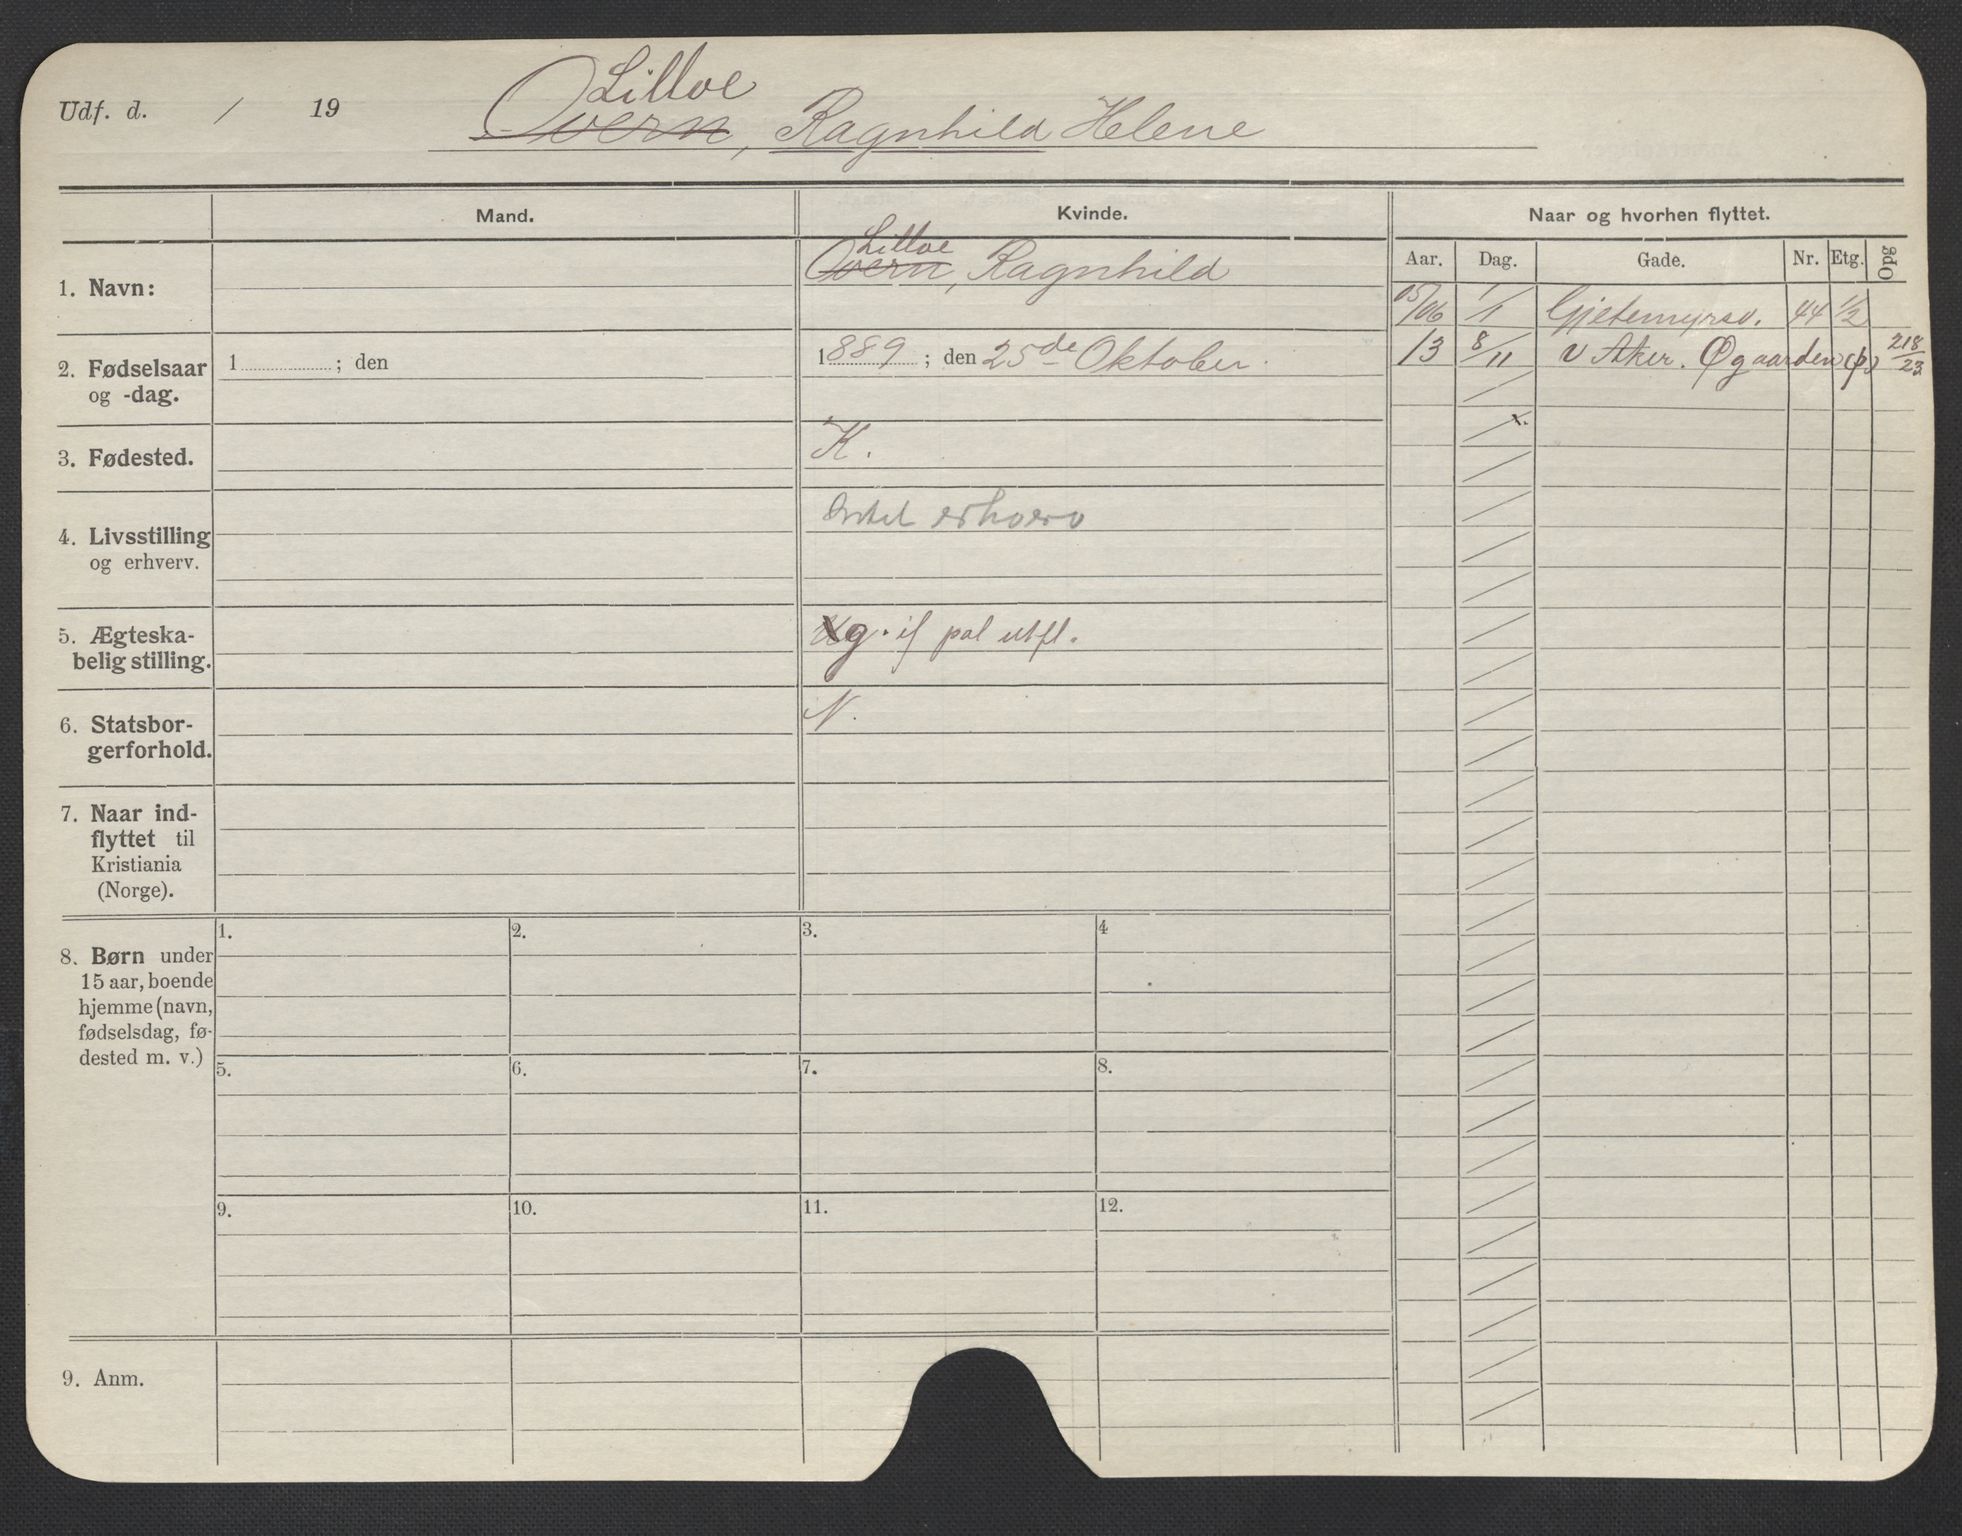 Udf. d. / 19
Lilloe
Overn, Ragnhild Helene
Mand.
Kvinde.
Naar og hvorhen flyttet.
Aar. Dag. Gade. Nr. Etg. Opg
1. Navn:
Lilloe
Overn, Ragnhild
05/06 1/1 Gjetemyrsv. 44 1/2
13 8/11 v Aker. Øgaarden (p) 218/23
2. Fødselsaar
og -dag.
1 ; den
1889 ; den 25de Oktober.
x.
3. Fødested.
K.
4. Livsstilling
og erhverv.
erhverv
5. Ægteska-
belig stilling.
g. if pol utfl.
6. Statsbor-
gerforhold.
N.
7. Naar ind-
flyttet til
Kristiania
(Norge).
8. Børn under
15 aar, boende
hjemme (navn,
fødselsdag, fø-
dested m. v.)
1. 2. 3. 4
5. 6. 7. 8.
9. 10. 11. 12.
9. Anm.